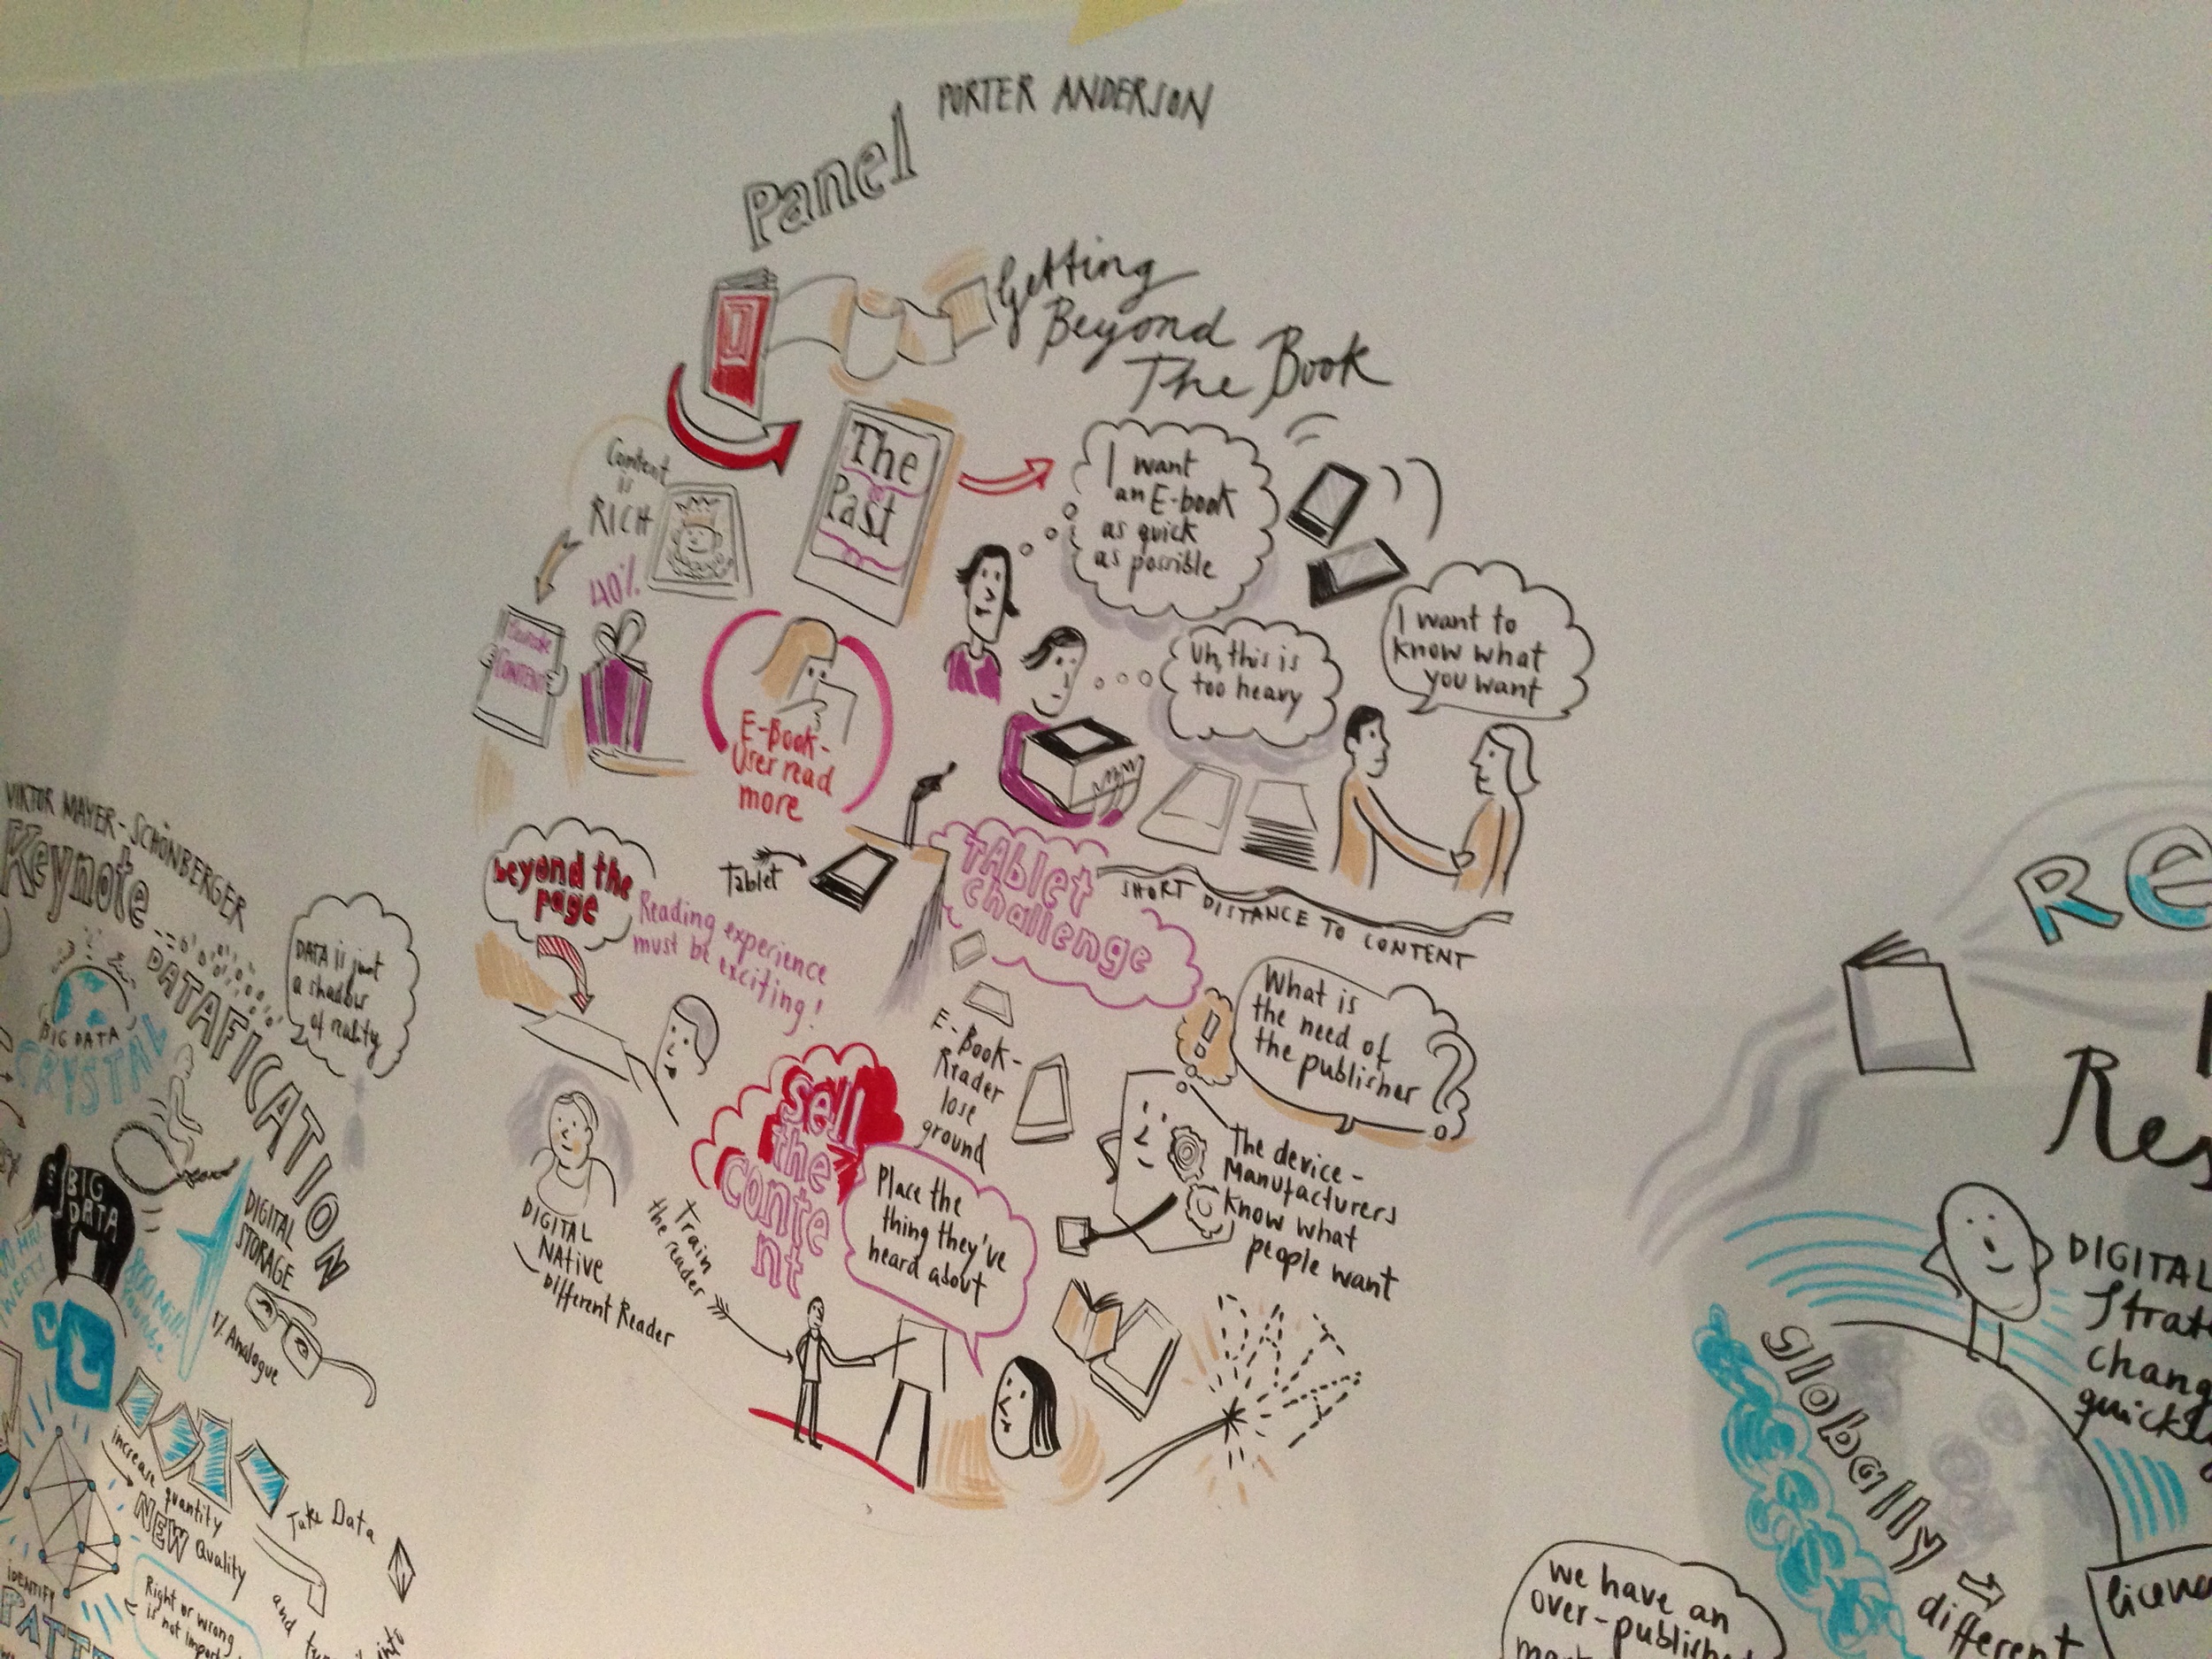 PORTER ANDERSON
Panel
Getting
Beyond
The Book
The
Past
Content
is
RICH
40%
CONTENT
I want
an E-book
as quick
as possible
Uh, this is
too heavy
I want to
know what
you want
E-Book-
User read
more
Tablet
TABlet
challenge
SHORT DISTANCE TO CONTENT
beyond the
page
Reading experience
must be exciting!
E-Book-
Reader
lose
ground
What is
the need of
the publisher
?
!
The device-
Manufacturers
know what
people want
Sell
the
conte
nt
Place the
thing they've
heard about
DIGITAL
NATIVE
Different Reader
Train
the reader
VIKTOR MAYER-SCHÖNBERGER
Keynote
DATAFICATION
DATA is just
a shadow
of reality
BIG DATA
CRYSTAL
BIG
DATA
DIGITAL
STORAGE
1% Analogue
increase quantity
NEW Quality
Take Data
and
into
IDENTIFY
PATT
Right or wrong
is not
Re
Res
DIGITAL
Strat
chang
quickl
Globally
different
we have an
over-published
licen